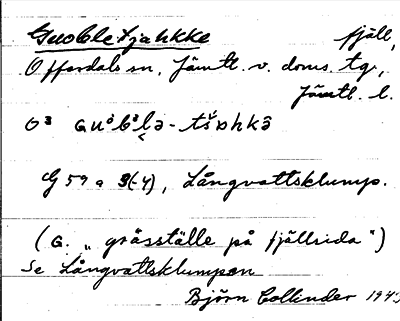 Guobletjahkke fjäll,
Offerdals sn, Jämtl. v. doms. tg.,
Jämtl. l.
O³ Guŏbᵒl̥ə-tšɒhkə̂
G 59 a 3(-4), Långvattsklump.
(G. „gräsställe på fjällsida")
Se Långvattsklumpen
Björn Collinder